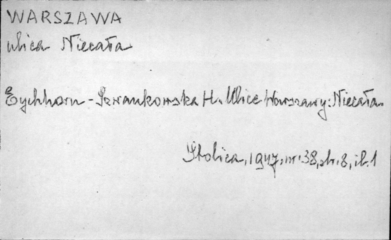 WARSZAWA
ulica Niecała
Eychhorn-Szwankowska H. Ulice Warszawy: Niecała
Stolica, 1947, nr. 38, str. 8, il. 1